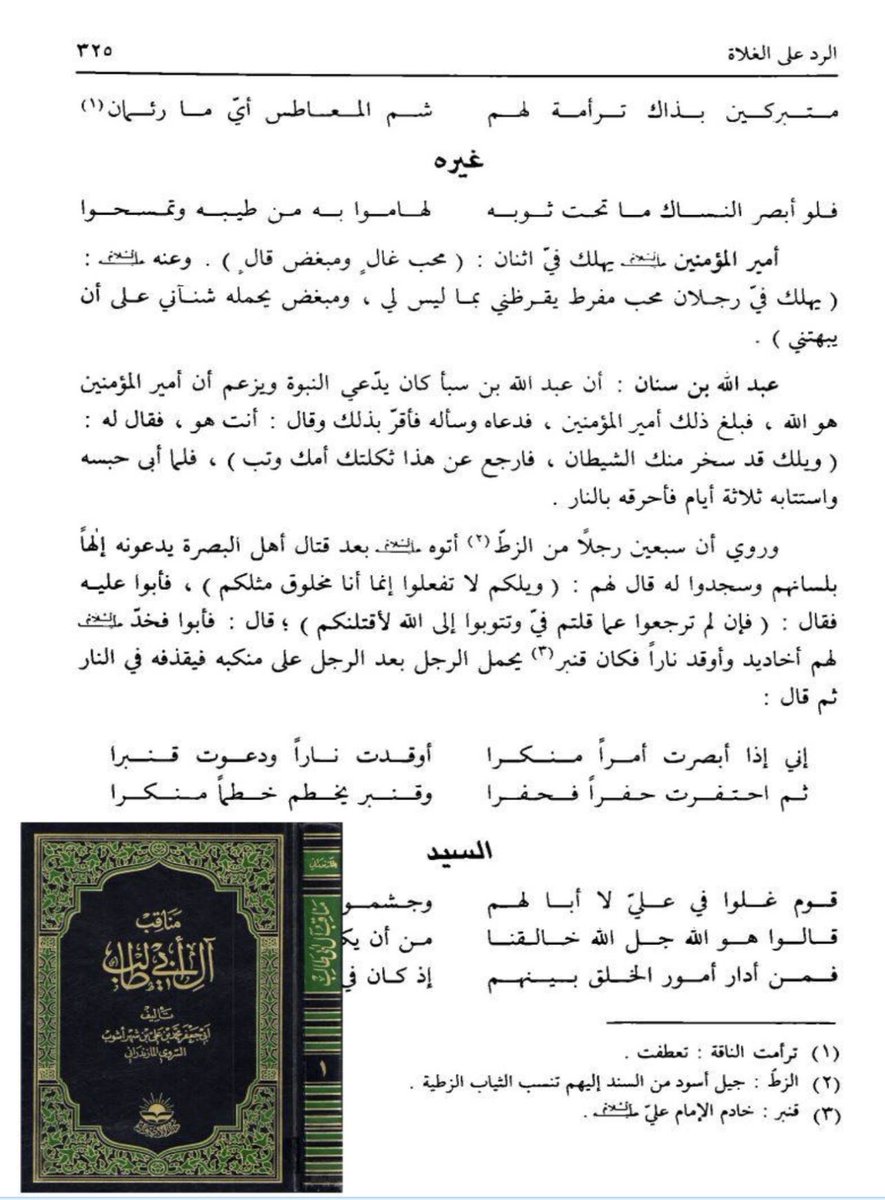 الرد على الغلاة ٣٢٥
متـبـركـين بـذاك تـرأمـة لهـم شـم المـعـاطـس أيّ مـا رئـمان(١)
غيره
فـلو أبصر النسـاك مـا تحت ثـوبـه لهـامـوا بـه مـن طيبـه وتمسـحـوا
أمير المؤمنين عليه السلام يهلك فيّ اثنان : ( محب غالٍ ومبغض قالٍ ) . وعنه عليه السلام :
( يهلك فيّ رجـلان محب مفرط يقـرظني بمـا ليس لي ، ومبغض يحمله شنـآني عـلى أن
يبهتني ) .
عبد الله بن سنان : أن عبد الله بن سبأ كان يدّعي النبوة ويزعم أن أمير المؤمنين
هو الله ، فبلغ ذلك أمير المؤمنين ، فدعاه وسأله فأقرّ بذلك وقال : أنت هو ، فقال له :
( ويلك قد سخر منك الشيطان ، فارجع عن هذا ثكلتك أمك وتب ) ، فلما أبى حبسه
واستتابه ثلاثة أيام فأحرقه بالنار .
وروي أن سبعين رجلاً من الزطّ(٢) أتوه عليه السلام بعد قتال أهل البصرة يدعونه إلٰهاً
بلسانهم وسجدوا له قال لهم : ( ويلكم لا تفعلوا إنما أنا مخلوق مثلكم ) ، فأبوا عليـه
فقال : ( فإن لم ترجعوا عما قلتم فيّ وتتوبوا إلى الله لأقتلنكم ) ؛ قال : فأبوا فخدّ عليه السلام
لهم أخاديد وأوقد ناراً فكان قنبر(٣) يحمل الرجل بعد الرجل على منكبه فيقذفه في النار
ثم قال :
إني إذا أبصرت أمـراً مـنـكـرا أوقـدت نـاراً ودعـوت قـنـبرا
ثـم احـتـفـرت حـفـراً فـحـفـرا وقـنـبر يخـطـم خـطـماً مـنـكـرا
السيد
قـوم غـلـوا في عـليّ لا أبـا لهـم وجـشمـو
قـالـوا هـو الله جـل الله خـالـقـنـا مـن أن يكـ
فـمـن أدار أمـور الخـلق بـيـنـهـم إذ كـان في
(١) ترأمت الناقة : تعطفت .
(٢) الزطّ : جيل أسود من السند إليهم تنسب الثياب الزطية .
(٣) قنبر : خادم الإمام عليّ عليه السلام .
مناقب
آل أبي طالب
تأليف
أبي جعفر محمد بن علي بن شهر آشوب
السروي المازندراني
مناقب آل أبي طالب
١